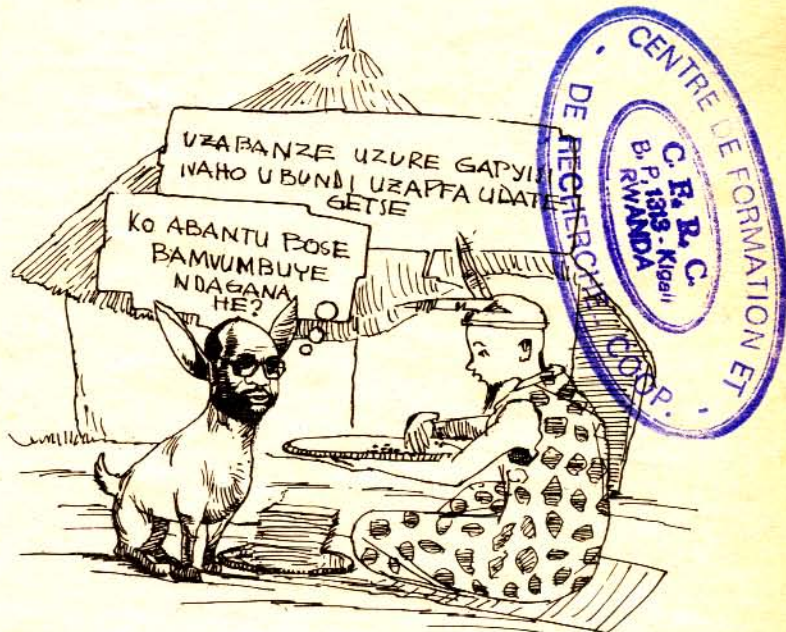 UZABANZE UZURE GAPYISI
NAHO UBUNDI UZAPFA UDATE-
GETSE
KO ABANTU BOSE
BAMVUMBUYE
NDAGANA
HE?
CENTRE DE FORMATION ET
DE RECHERCHE COOP.
C. F. R. C.
B. P. 1313 - Kigali
RWANDA